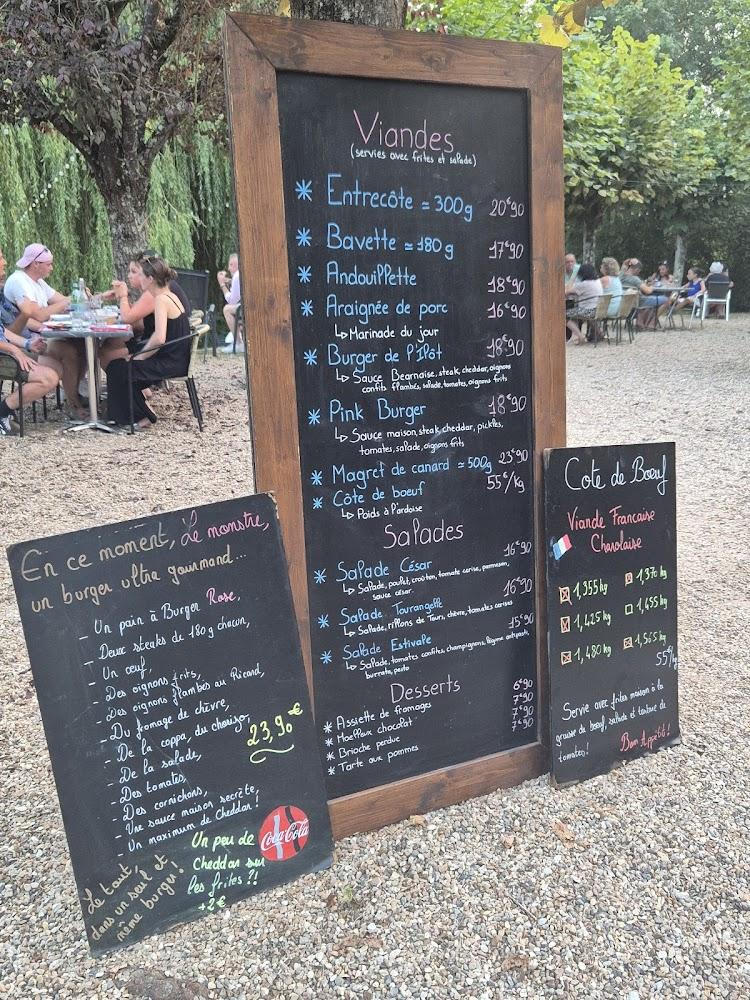 Viandes
(servies avec frites et salade)
* Entrecôte ≃ 300g 20€90
* Bavette ≃ 180g 17€90
* Andouillette 18€90
* Araignée de porc 16€90
↳ Marinade du jour
* Burger de l'Ilôt 18€90
↳ Sauce Bearnaise, steak, cheddar, oignons
confits flambés, salade, tomates, oignons frits
* Pink Burger 18€90
↳ Sauce maison, steak, cheddar, pickles,
tomates, salade, oignons frits
* Magret de canard ≃ 500g 23€90
* Côte de boeuf 55€/kg
↳ Poids à l'ardoise
Salades
* Salade César 16€90
↳ Salade, poulet, croûton, tomate cerise, parmesan,
sauce césar
* Salade Tourangelle 16€90
↳ Salade, rillons de Tours, chèvre, tomates cerises
* Salade Estivale 15€90
↳ Salade, tomates confites, champignons, légume antipasti,
burrata, pesto
Desserts
* Assiette de fromages 6€90
* Moelleux chocolat 7€90
* Brioche perdue 7€90
* Tarte aux pommes 7€90
En ce moment, Le monstre,
un burger ultra gourmand...
- Un pain à Burger Rose,
- Deux steaks de 180g chacun,
- Un oeuf,
- Des oignons frits,
- Des oignons flambés au Ricard,
- Du fromage de chèvre,
- De la coppa, du chorizo,
- De la salade,
- Des tomates,
- Des cornichons,
- Une sauce maison secrète,
- Un maximum de Cheddar!
23,90€
Le tout,
dans un seul et
même burger!
Un peu de
Cheddar sur
les frites ?!
+2€
Coca-Cola
Cote de Boeuf
Viande Francaise
Charolaise
1,355 kg 1,370 kg
1,425 kg 1,455 kg
1,480 kg 1,565 kg
55€/kg
Servie avec frites maison à la
graisse de boeuf, salade et tartare de
tomates!
Bon Appétit!